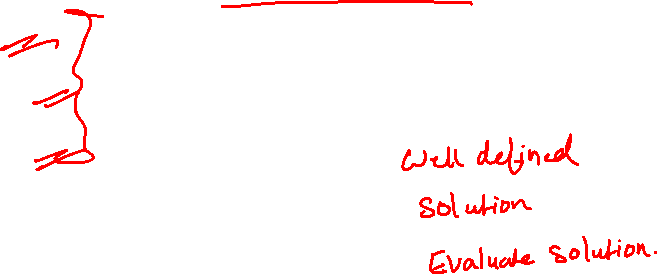 Well defined
Solution
Evaluate solution.